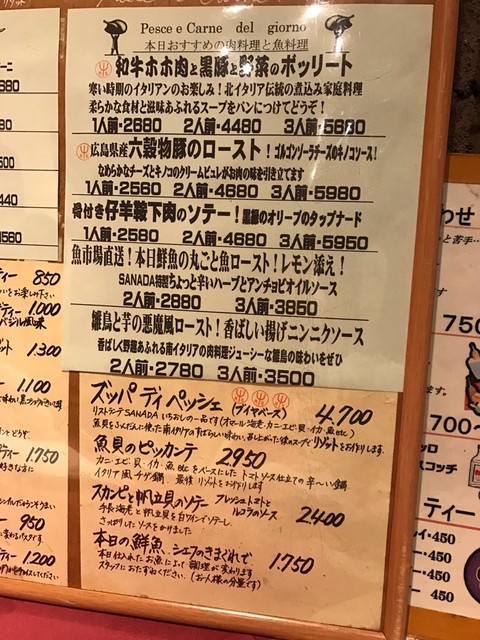 Pesce e Carne del giorno
本日おすすめの肉料理と魚料理
和牛ホホ肉と黒豚と野菜のボッリート
寒い時期のイタリアンのお楽しみ!北イタリア伝統の煮込み家庭料理
柔らかな食材と滋味あふれるスープをパンにつけてどうぞ!
1人前-2680 2人前-4480 3人前-5680
広島県産六穀物豚のロースト!ゴルゴンゾーラチーズのキノコソース!
なめらかなチーズとキノコのクリームピュレがお肉の味を引き立てます
1人前-2580 2人前-4680 3人前-5980
骨付き仔羊鞍下肉のソテー!黒部のオリーブのタップナード
1人前-2580 2人前-4680 3人前-5950
魚市場直送!本日鮮魚の丸ごと魚ロースト!レモン添え!
SANADA特製ちょっと辛いハーブとアンチョビオイルソース
2人前-2880 3人前-3850
雛鳥と芋の悪魔風ロースト!香ばしい揚げニンニクソース
香ばしく野趣あふれる南イタリアの肉料理ジューシーな雛鳥の味わいをぜひ
2人前-2780 3人前-3500
ズッパ ディ ペッシェ (ブイヤベース) 4.700
リストランテSANADA いちおしの一品です(オマール海老・カニ・エビ・貝・イカ・魚etc)
魚貝のピッカンテ 2950
カニ・エビ・貝・イカ・魚etcをベースにしたトマトソース仕立ての辛〜い鍋
イタリア風チゲ鍋 最後リゾットをお作りします
スカンピと帆立貝のソテー フレッシュトマトとルコラのソース 2400
手長海老と帆立貝を白ワインでソテーし
さっぱりしたソースをかけました
本日の鮮魚 シェフのきまぐれで 1.750
本日仕入れたお魚によって調理が変わります
スタッフにおたずねください。(お一人様の分量です)
850
1.000
1.300
1.100
1.750
950
1.200
750
700〜
スコッチ
ティー
450
450
450